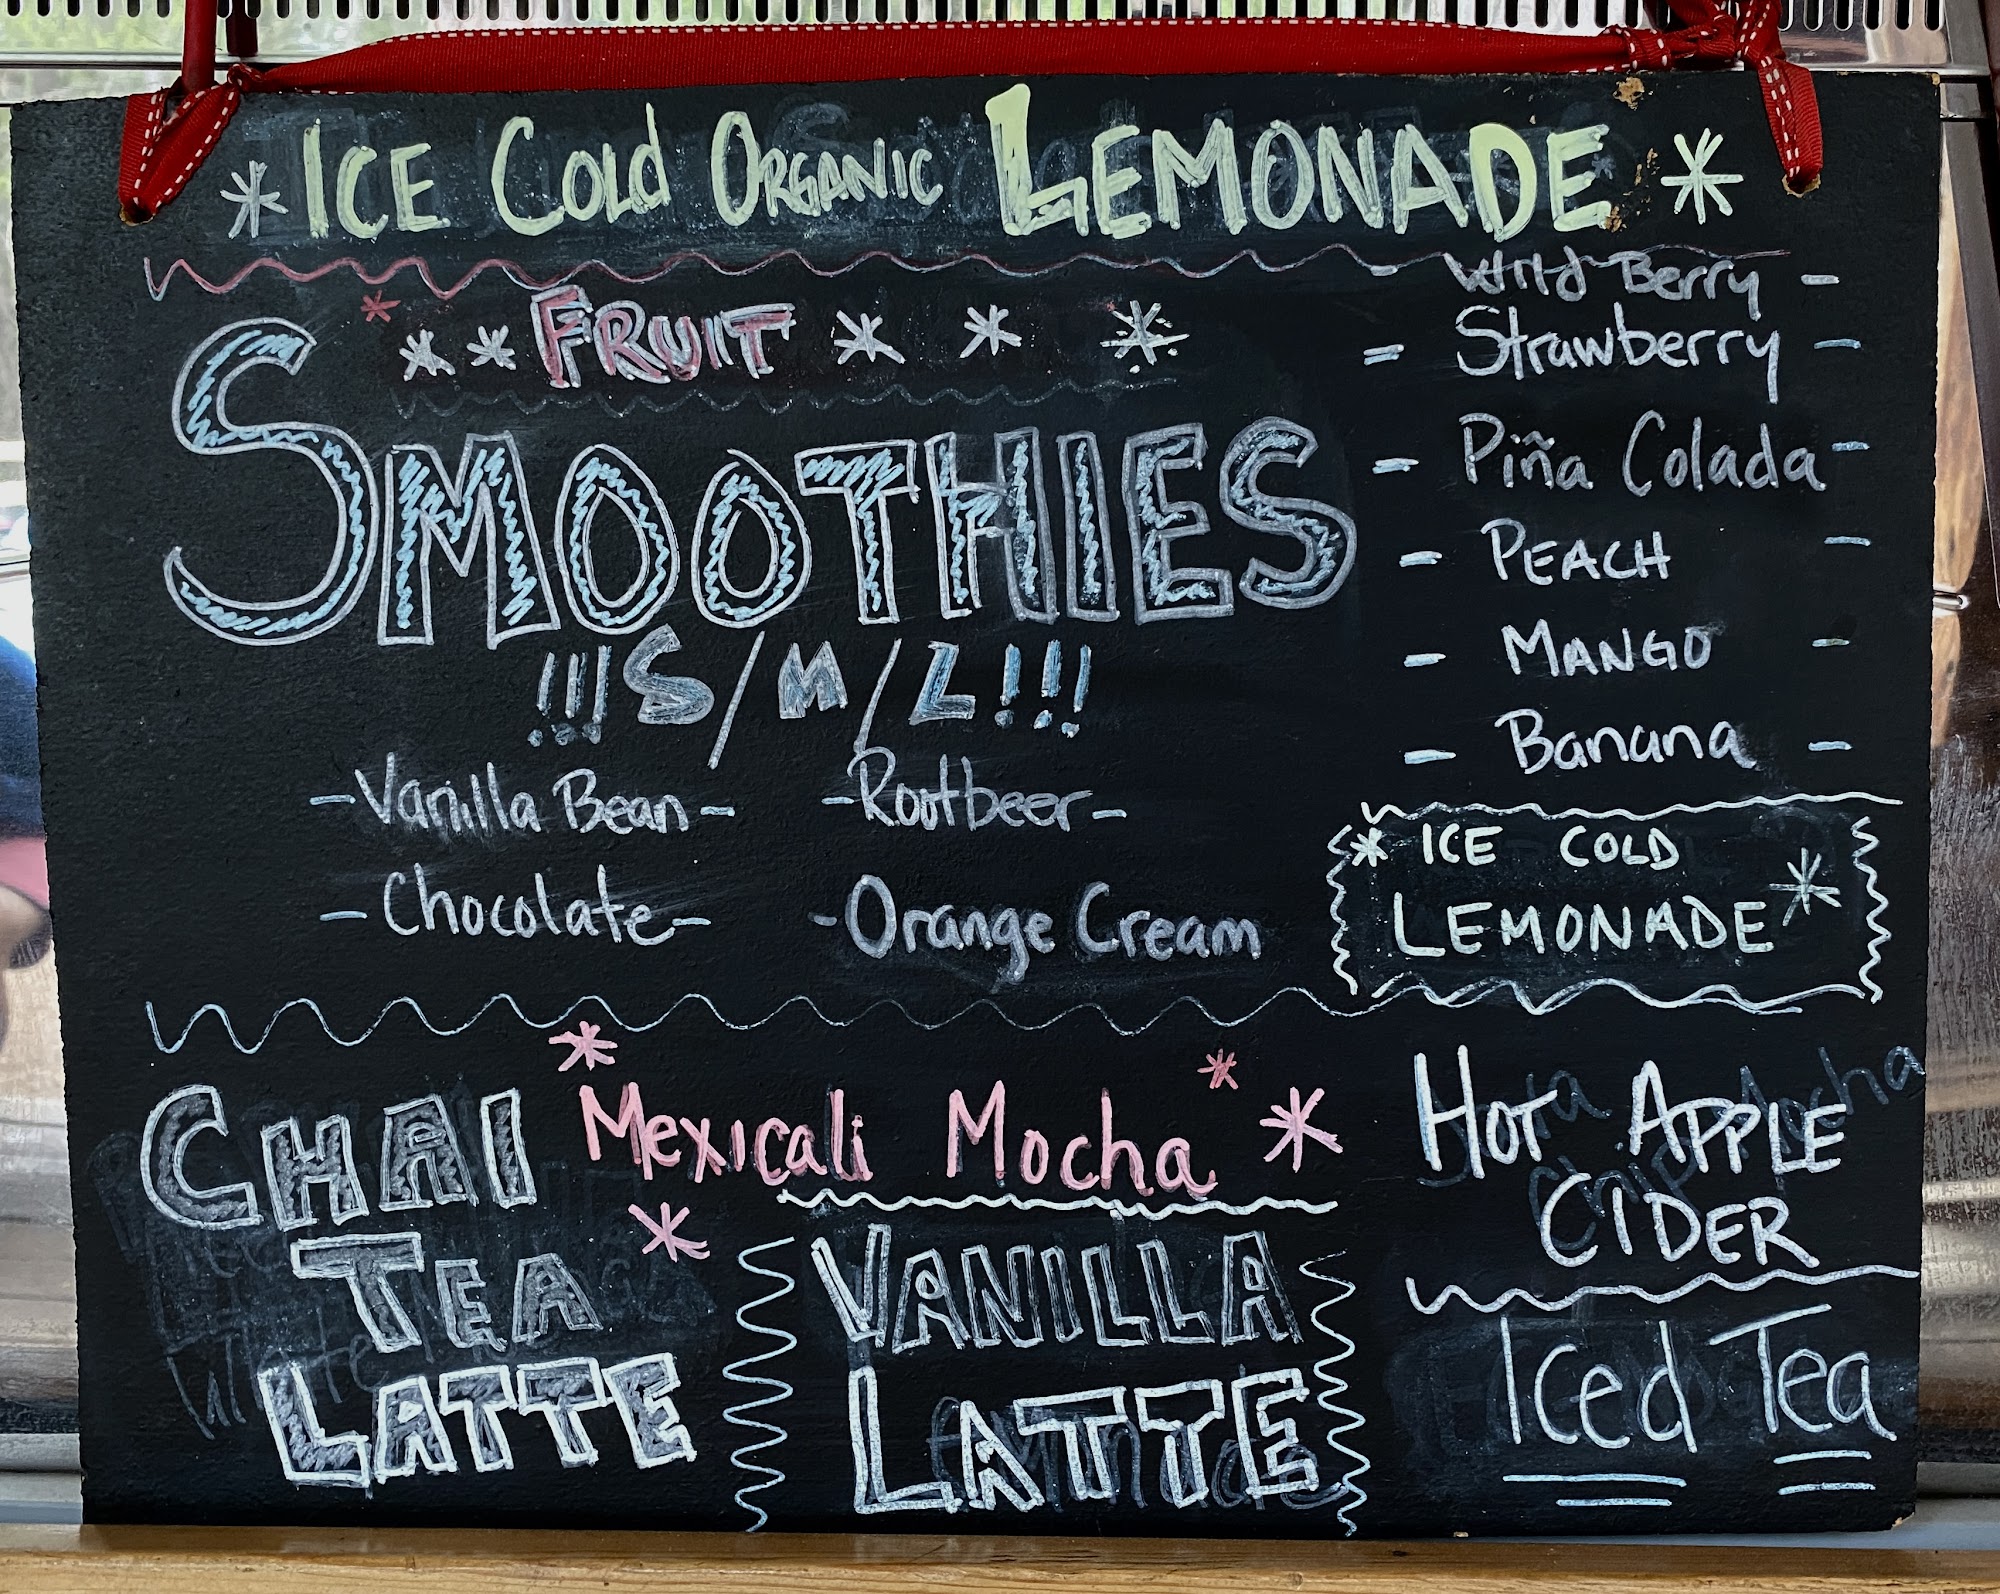 ICE COLD ORGANIC LEMONADE
FRUIT
SMOOTHIES
!!! S/M/L!!!
-Vanilla Bean-
-Rootbeer-
-Chocolate-
-Orange Cream
- Wild Berry -
- Strawberry -
- Piña Colada -
- PEACH -
- MANGO -
- Banana -
ICE COLD
LEMONADE
CHAI
TEA
LATTE
Mexicali Mocha
VANILLA
LATTE
HOT APPLE
CIDER
Iced Tea